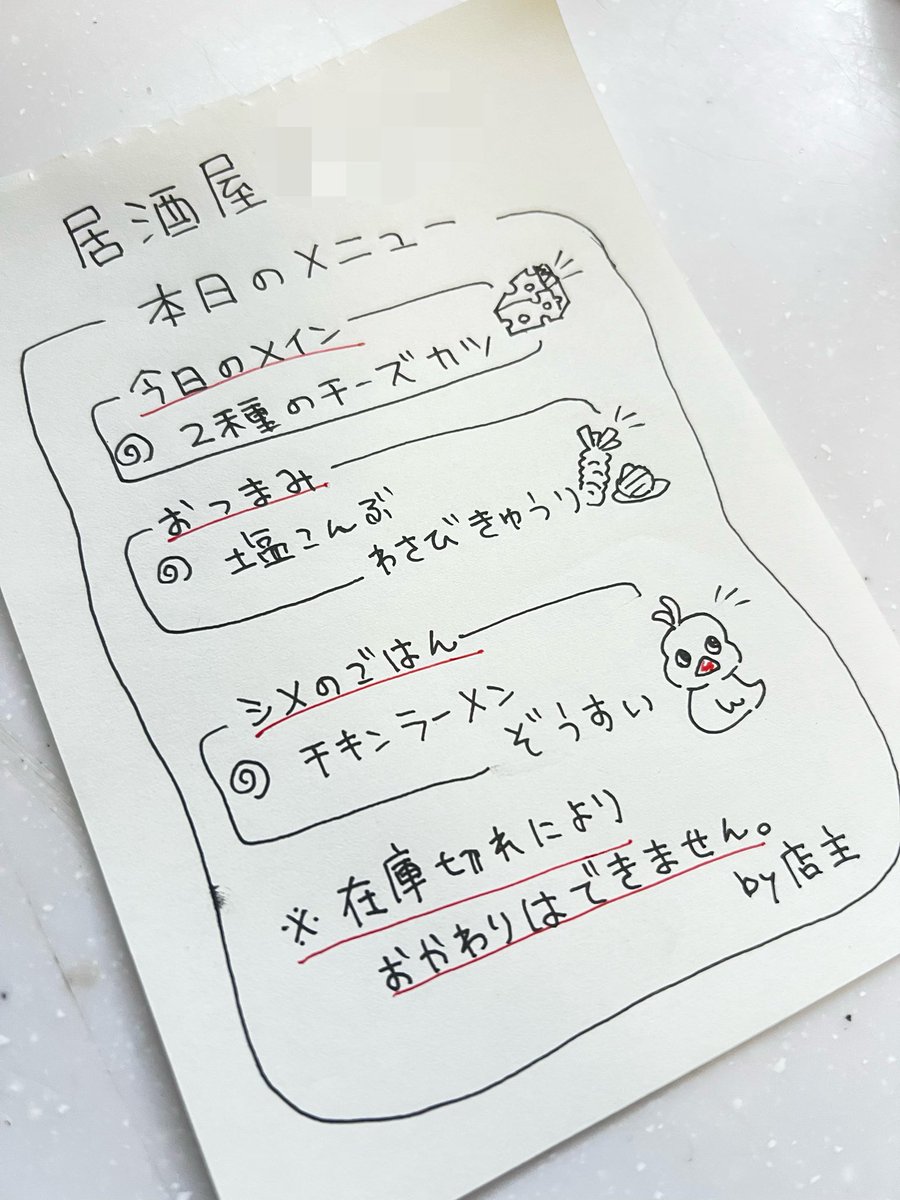 居酒屋
本日のメニュー
今日のメイン
2種のチーズカツ
おつまみ
塩こんぶ
わさびきゅうり
シメのごはん
チキンラーメン
ぞうすい
※在庫切れにより
おかわりはできません。
by店主